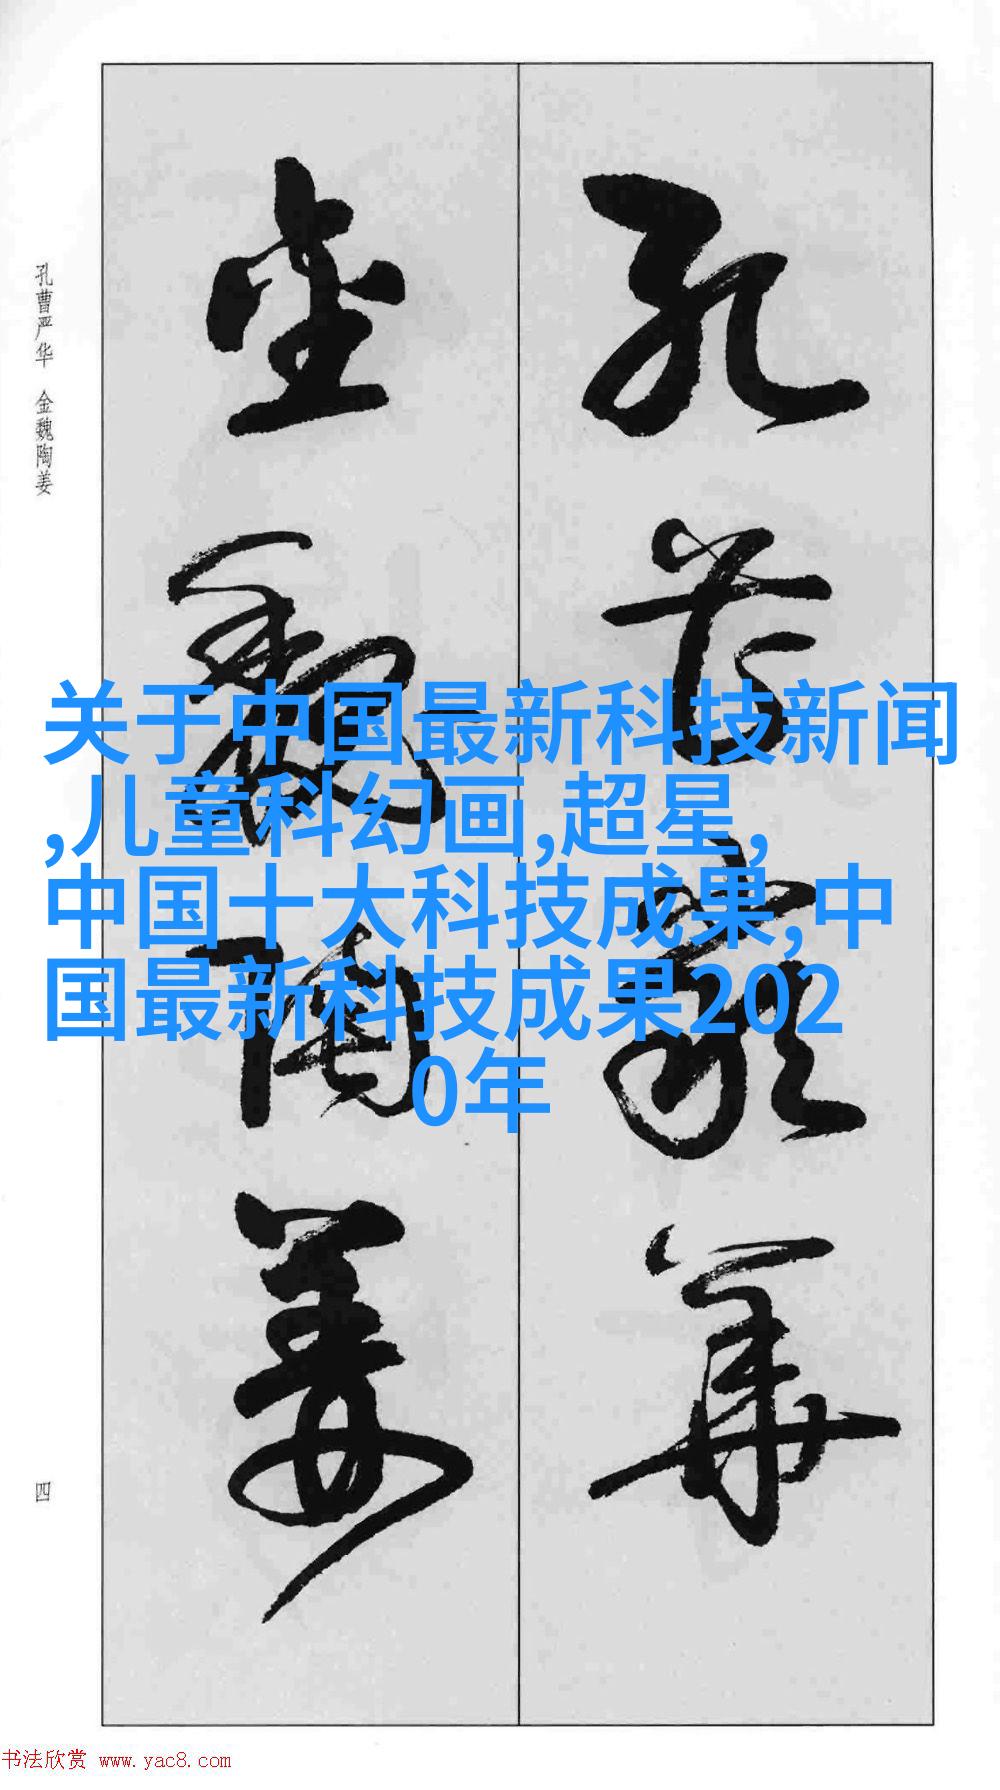 孔曹严华 金魏陶姜
孔曹严华
金魏陶姜
关于中国最新科技新闻
,儿童科幻画,超星,
中国十大科技成果,中
国最新科技成果202
0年
四
书法欣赏 www.yac8.com